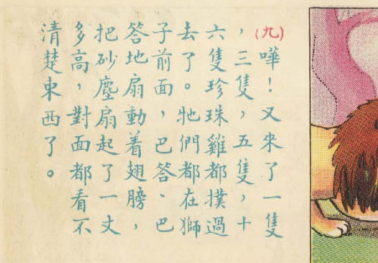 (九)嘩!又來了一隻
,三隻,五隻,十
六隻珍珠雞都撲過
去了。牠們都在獅
子前面,巴答、巴
答地扇動着翅膀,
把砂塵扇起了一丈
多高,對面都看不
清楚東西了。